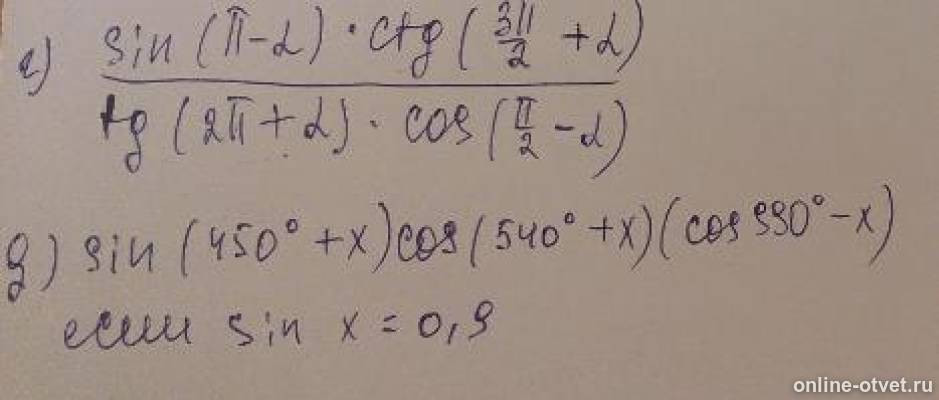 г) sin (π-α) · ctg (3π/2 + α)
tg (2π + α) · cos (π/2 - α)
д) sin (450° + x) cos (540° + x) (cos 990° - x)
если sin x = 0,9
online-otvet.ru